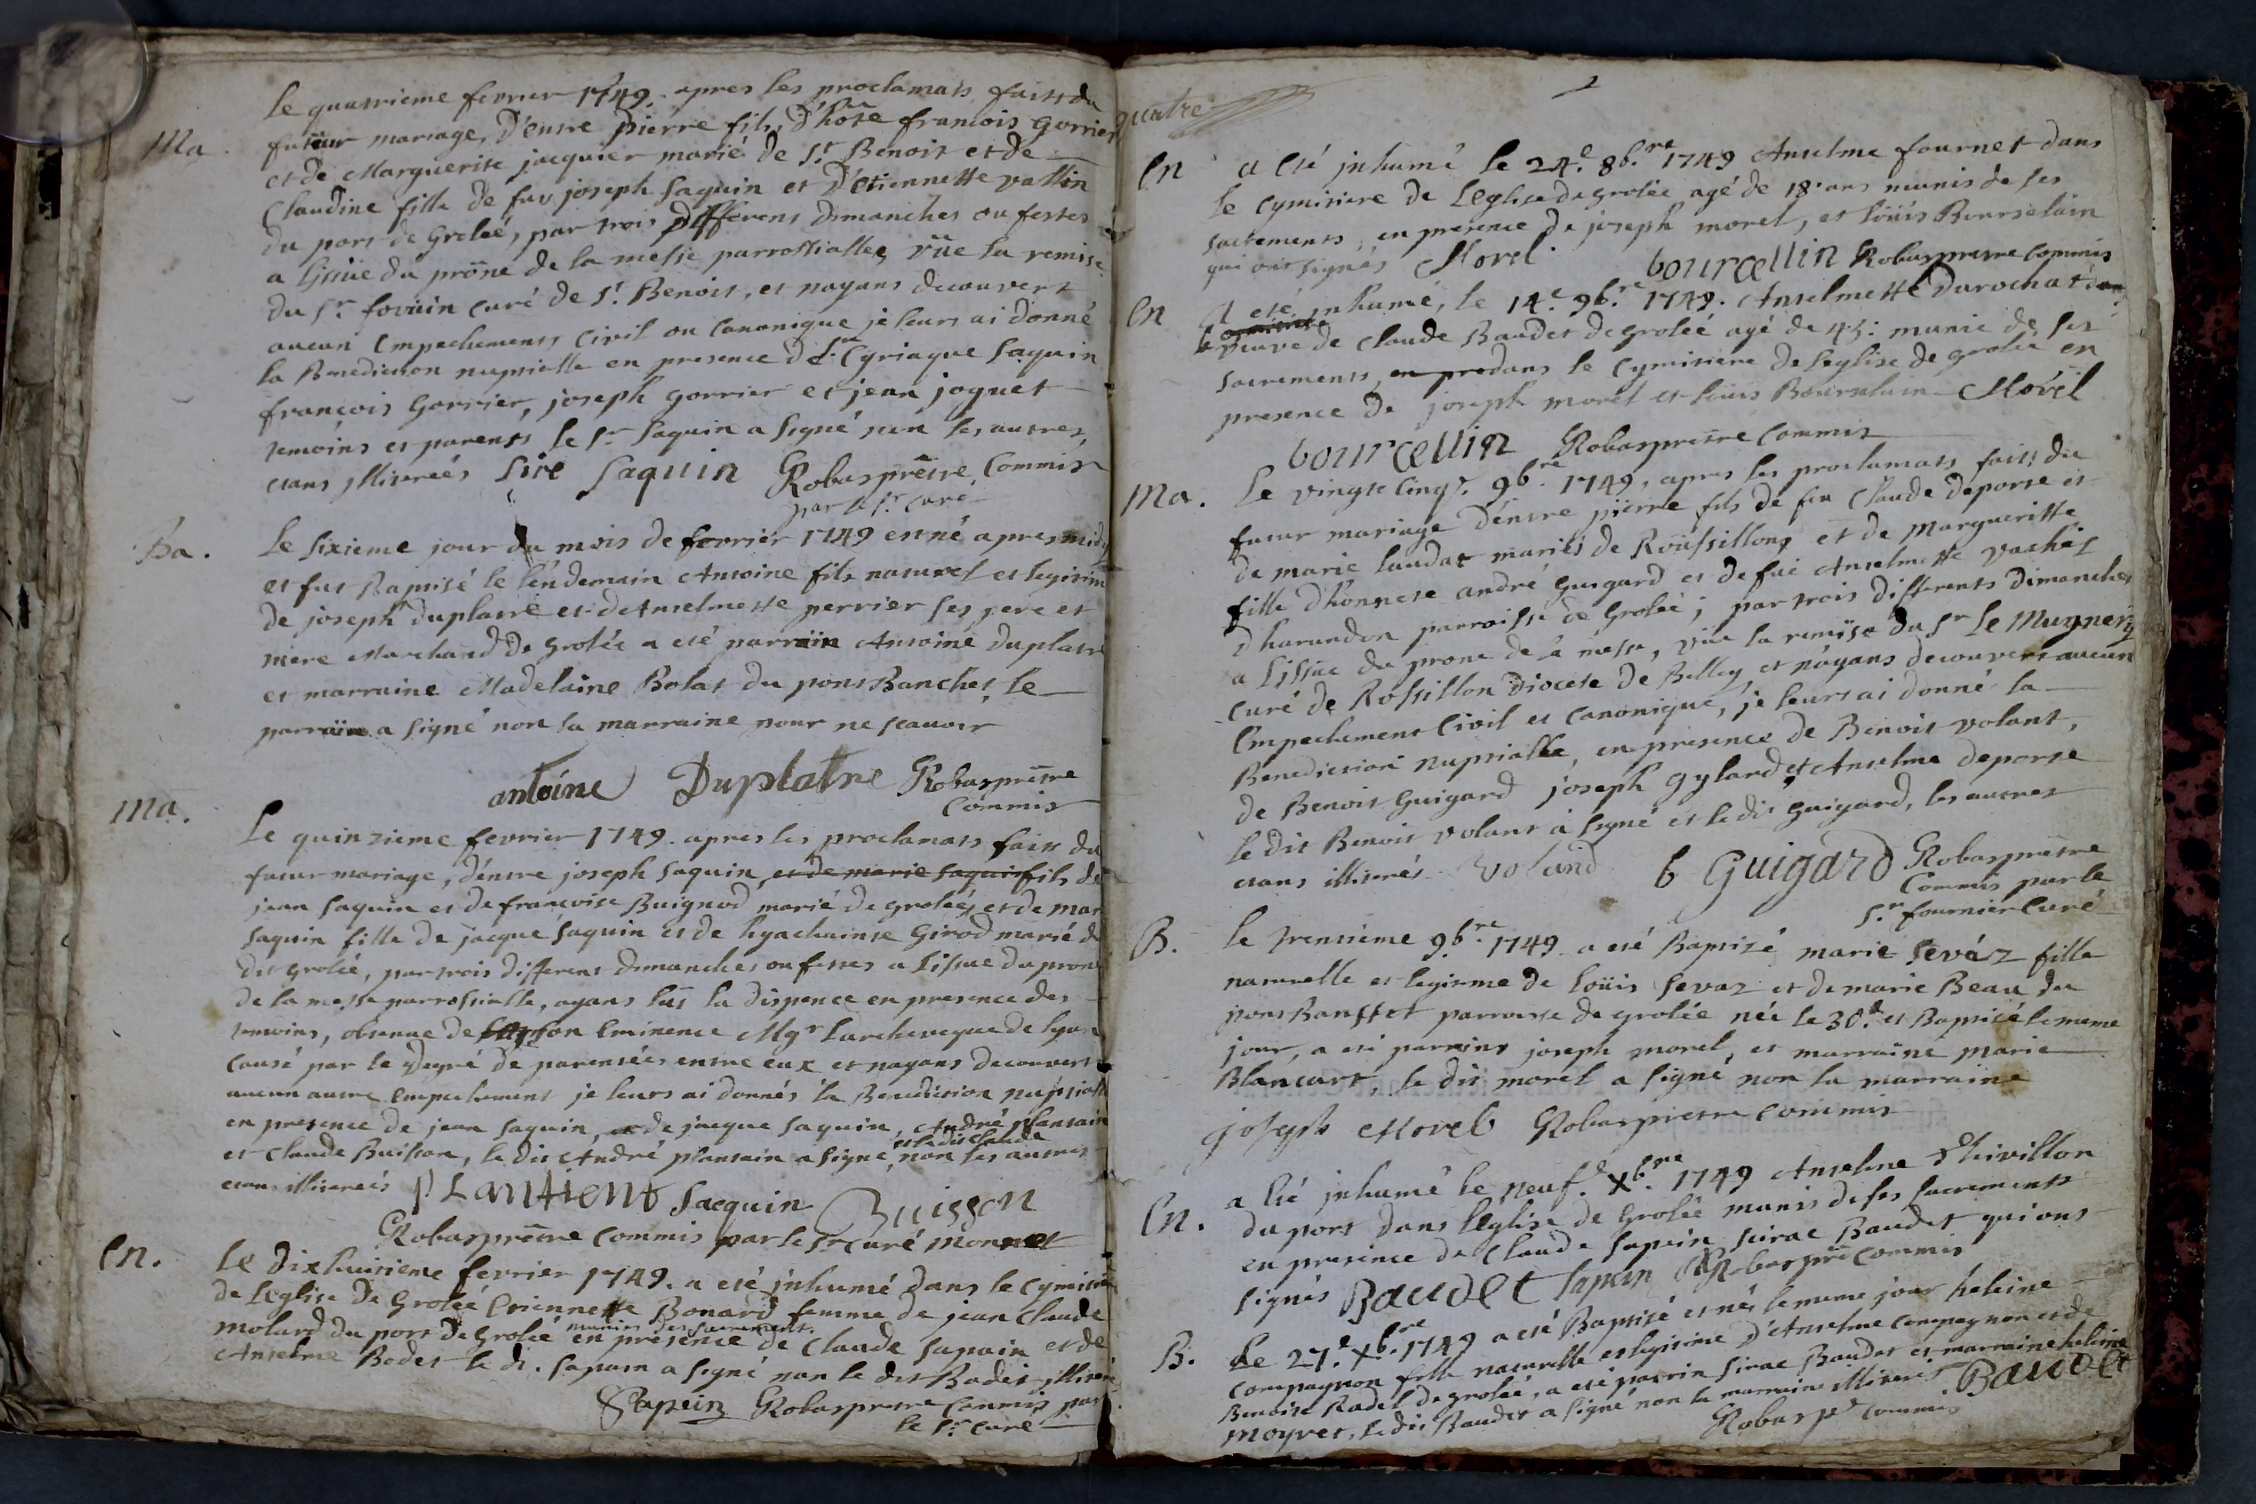 le quatrieme fevrier 1749. apres les proclamats faits du
Ma. futur mariage, d'entre pierre fils, d'hote francois Gorrier
et de Marguerite jacquier marié de St Benoit et de
Claudine fille de feu joseph saquin et d'etiennette vallin
du port de Groleé, par trois differens dimanches ou festes
a lissüe du prône de la messe parrossialle, vüe la remise
du Sr curé de St Benoit, et nayans decouvert
aucun Empechements Civil ou Canonique je leurs ai donné
la Benediction nuptialle en presence de Sr Cyriaque saquin
françois Gorrier, joseph gorrier et jean joguet
temoins et parents le Sr saquin a signé non les autres
etans illiterés Sire saquin Robas prêtre Commis
par le Sr curé
Ba. Le sixieme jour du mois de fevrier 1749 est né apres midy
et fut Baptisé le lendemain Antoine fils naturel et legitime
de joseph duplatre et d'Anselmette perrier ses pere et
mere Marchand de groleé a eté parrain Antoine duplatre
et marraine Madelaine Bolat du pont Banchet, le
parrain a signé non la marraine pour ne scauoir
antoine Duplatre Robas prêtre
Commis
Ma. Le quinzieme fevrier 1749. apres les proclamats faits du
futur mariage, d'entre joseph saquin, et de marie saquin fils de
jean saquin et de francoise Buignod marié de groleé, et de mar
saquin fille de jacque saquin et de hyachainte Girod marié d
dit groleé, par trois differens dimanches ou festes a lissue du prone
de la messe parrossialle, ayans lüs la dispence en presence des
temoins, obtenue de son Eminence Mgr Larcheveque de lyon
causé par le degré de parentées entre eux et nayans decouvert
aucun autre Empechement je leurs ai donnés la Benediction nuptiall
en presence de jean saquin, de jacque saquin, André plantain
et le dit claude
et Claude Buisson, le dit André plantain a signé, non les autres
etans illiterées PLantient sacquin Buisson
Robas prêtre Commis par le Sr curé monnet
En. Le dixhuitieme fevrier 1749. a eté inhumé dans le Cymitie
de Leglise de Groleé Etiennette Bonard femme de jean Claude
munies des sacrements.
molard du port de Groleé en presence de Claude sapain et de
Anselme Bodet le dt. sapain a signé non le dit Badet illiteré
Sapein Robas pretre Commis par
le Sr curé
quatre
En a eté inhumé le 24e 8bre 1749 Anselme fournet dans
le cymitiere de Leglise de groleé agé de 18 ans munis de ses
sacrements, en presence de joseph morel, et loüis Bourselain
qui ont signés Morel bourcellin Robas pretre commis
En A eté inhumé, le 14e 9bre 1749. Anselmette Durochat
veuve de Claude Baudet de groleé agé de 45: munie de ses
sacrements, en pre dans le Cymitiere de leglise de groleé en
presence de joseph morel et loüis Bourselain Morel
bourcellin Robas pretre Commis
Ma. Le vingt cinqe. 9bre 1749, apres les proclamats faits du
futur mariage d'entre pierre fils de feu Claude deporte et
de marie laudat mariés de Roussillon, et de Margueritte
fille d'honnete andré Guigard et de fue Anselmette vachat
dharandon parroisse de Groleé; par trois differents dimanches
a Lissue du prone de la messe, vüe la remise du Sr le Mugnery
curé de Rossillon diocese de Belley, et n'ayans decouvert aucun
Empechement Civil et Canonique, je leurs ai donné la
Benediction nuptialle, en presence de Benoit volant,
de Benoit Guigard joseph gylard, et Anselme deporte
le dit Benoit volant à signé et le dit Guigard, les autres
etans illiterés voland b Guigard Robas prêtre
Commis par le
Sr fournier Curé
B. le trentième 9bre 1749 a eté Baptizé marie sevaz fille
naturelle et legitime de loüis sevaz et de marie Beau du
pont Banchet parroisse de groleé née le 30e et Baptizé le meme
jour, a eté parrains joseph morel, et marraine marie
Blancart, le dit morel a signé non la marraine
joseph Morel Robas pretre Commis
En. a eté inhumé le neufe. Xbre 1749 Anselme Chivillon
du port dans leglise de Groleé munis de ses sacrements
en presence de Claude sapein sirac Baudet qui ont
signés Baudet sapein Robas pre Commis
B. Le 27e. Xbre 1749 a eté Baptizé et neé le meme jour heleine
Compagnon fille naturelle et legitime d'Anselme Compagnon et de
Benoite Radel de groleé, a eté parrin sirac Baudet et marraine heleine
Moyret, le dit Baudet a signé non la marraine illiterés Baudet
Robas pe Commis